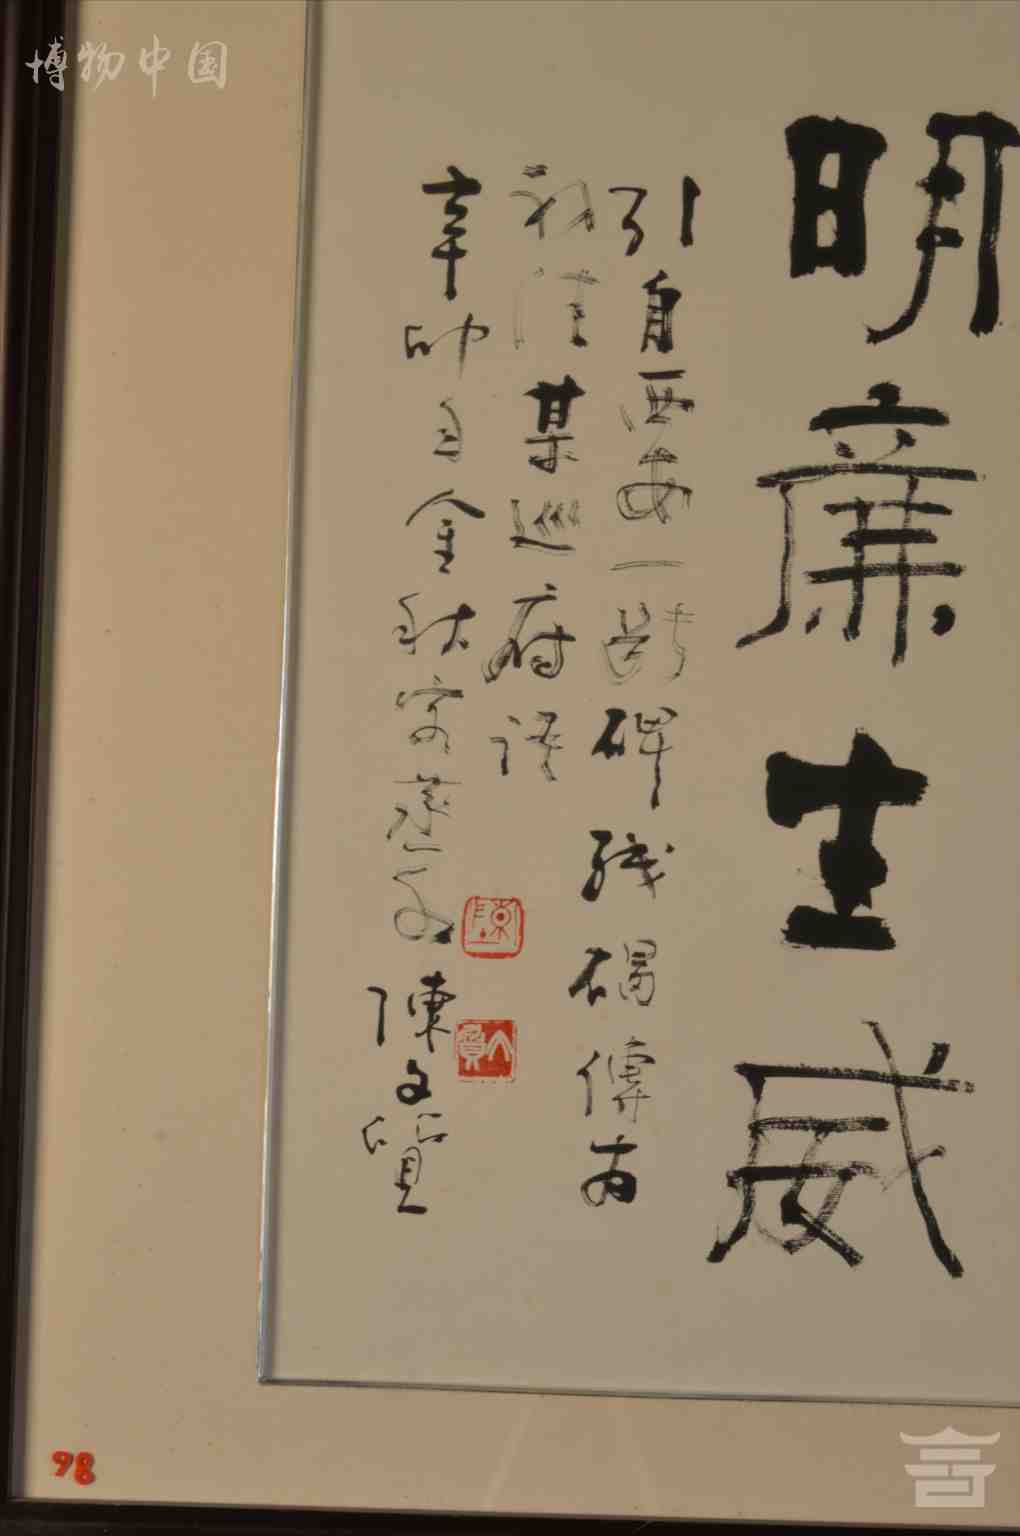 博物中国
明廉生威
引自西安一断碑残碣傳为
初清某巡府语
辛卯金秋客陳文質
陳
98